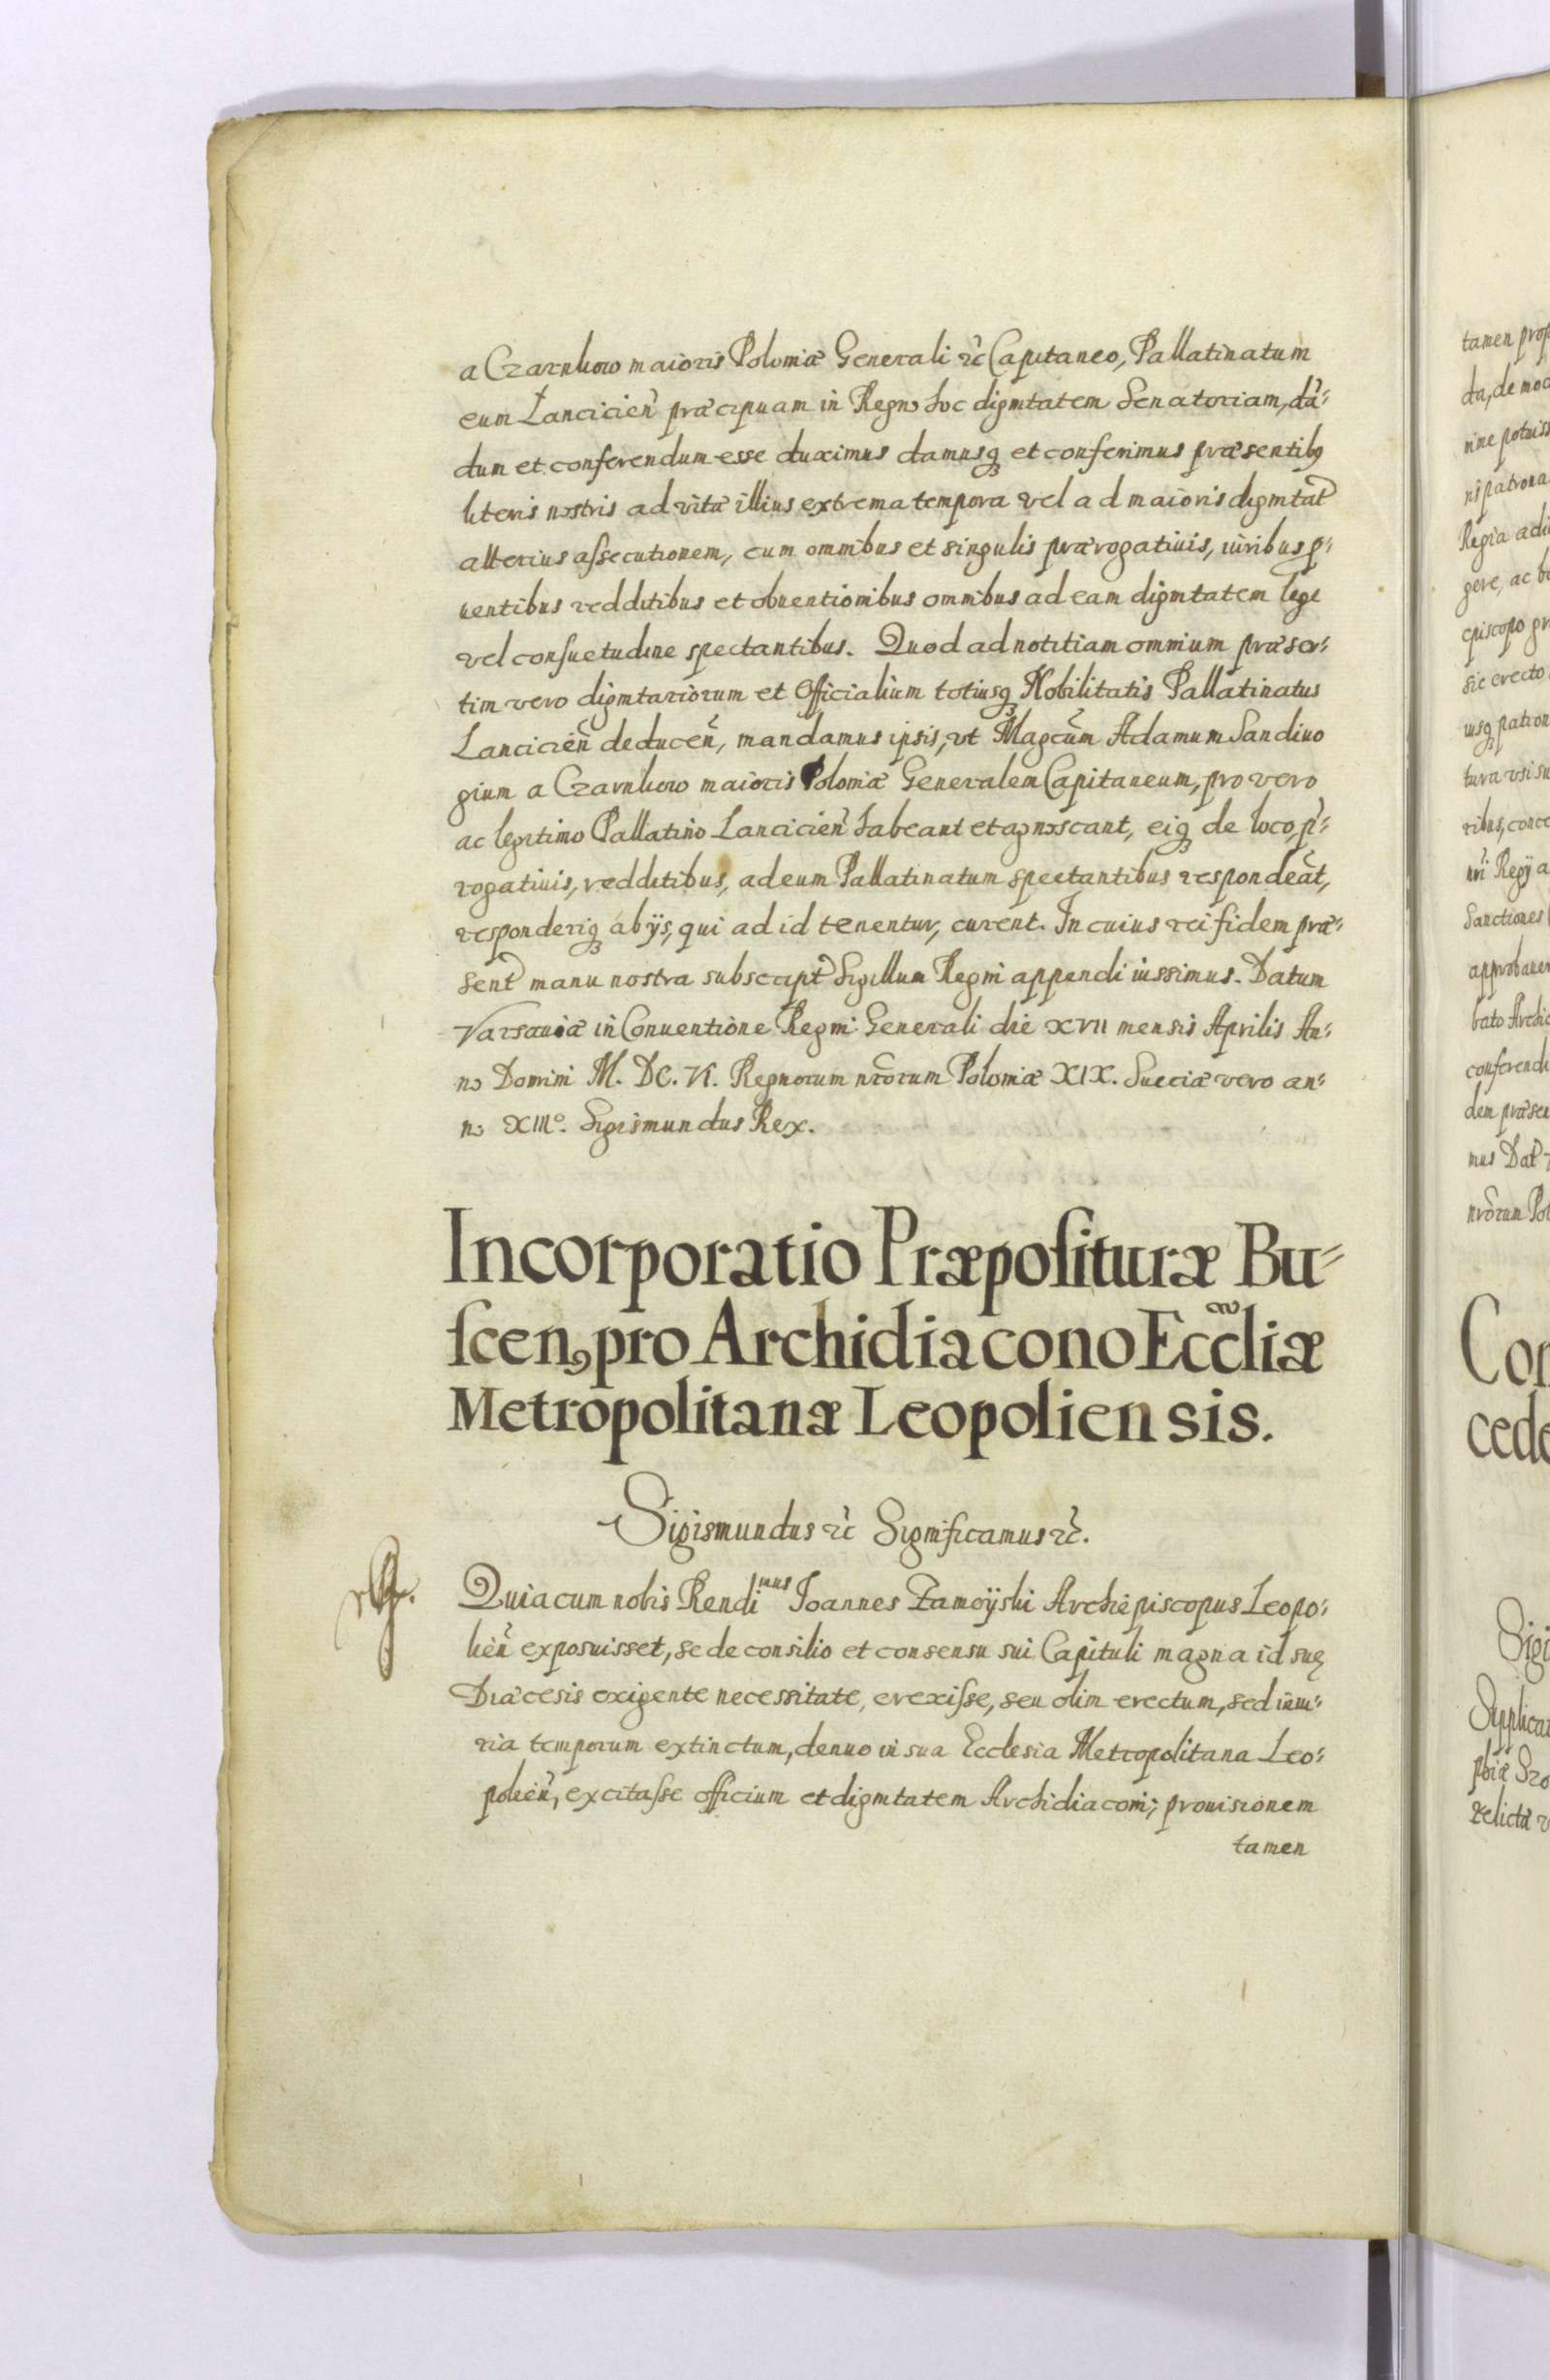 a Czarnkow maioris Poloniæ Generali etc Capitaneo, Pallatinatum
eum Lancicień præcipuam in Regno hoc dignitatem Senatoriam, dā-
dum et conferendum esse duximus damusq3 et conferimus præsentib9
literis nostris ad vitæ illius extrema tempora vel ad maioris dignitat̃
alterius assecutionem, cum omnibus et singulis prærogatiuis, iuribus p-
uentibus redditibus et obuentionibus omnibus ad eam dignitatem lege
vel consuetudine spectantibus. Quod ad notitiam omnium præser-
tim vero dignitariorum et Officialium totiusq3 Nobilitatis Pallatinatus
Lancicień deduceñ, mandamus ipsis, vt Magc̃um Adamum Sandiuo
gium a Czarnkow maioris Poloniæ Generalem Capitaneum, pro vero
ac legitimo Pallatino Lancicień habeant et agnoscant, eiq3 de loco, p̃-
rogatiuis, redditibus, ad eum Pallatinatum spectantibus respondeāt,
responderiq3 ab ijs, qui ad id tenentur, curent. In cuius rei fidem præ-
sent̃ manu nostra subscript̃ Sigillum Regni appendi iussimus. Datum
Varsauiæ in Conuentione Regni Generali die XVII mensis Aprilis An-
no Domini M. DC. VI. Regnorum nr̃orum Poloniæ XIX. Sueciæ vero an-
no XIIIo. Sigismundus Rex.
Incorporatio Præposituræ Bu-
scen, pro Archidiacono Eccl̃iæ
Metropolitanæ Leopoliensis.
Sigismundus etc Significamus etc.
Quia cum nobis Rendimus Joannes Zamoÿski Archiepiscopus Leopo-
lień exposuisset, se de consilio et consensu sui Capituli magna id suę
Diæcesis exigente necessitate, erexisse, seu olim erectum, sed iniu-
ria temporum extinctum, denuo in sua Ecclesia Metropolitana Leo-
polień, excitasse officium et dignitatem Archidiaconi; prouisionem
tamen
tamen prop
da, de mod
nine potuiss
patrona
Regia
gere, ac
episcopo gr
sic erecto
iusq3 patron
tura vti su
ribus, conce
nr̃i Regij a
Sanctiones
approbauer
bato Archid
conferendi
dem præsen
mus Dat̃
nr̃orum Pol
Con
cede
Sigi
Supplicat
relictæ